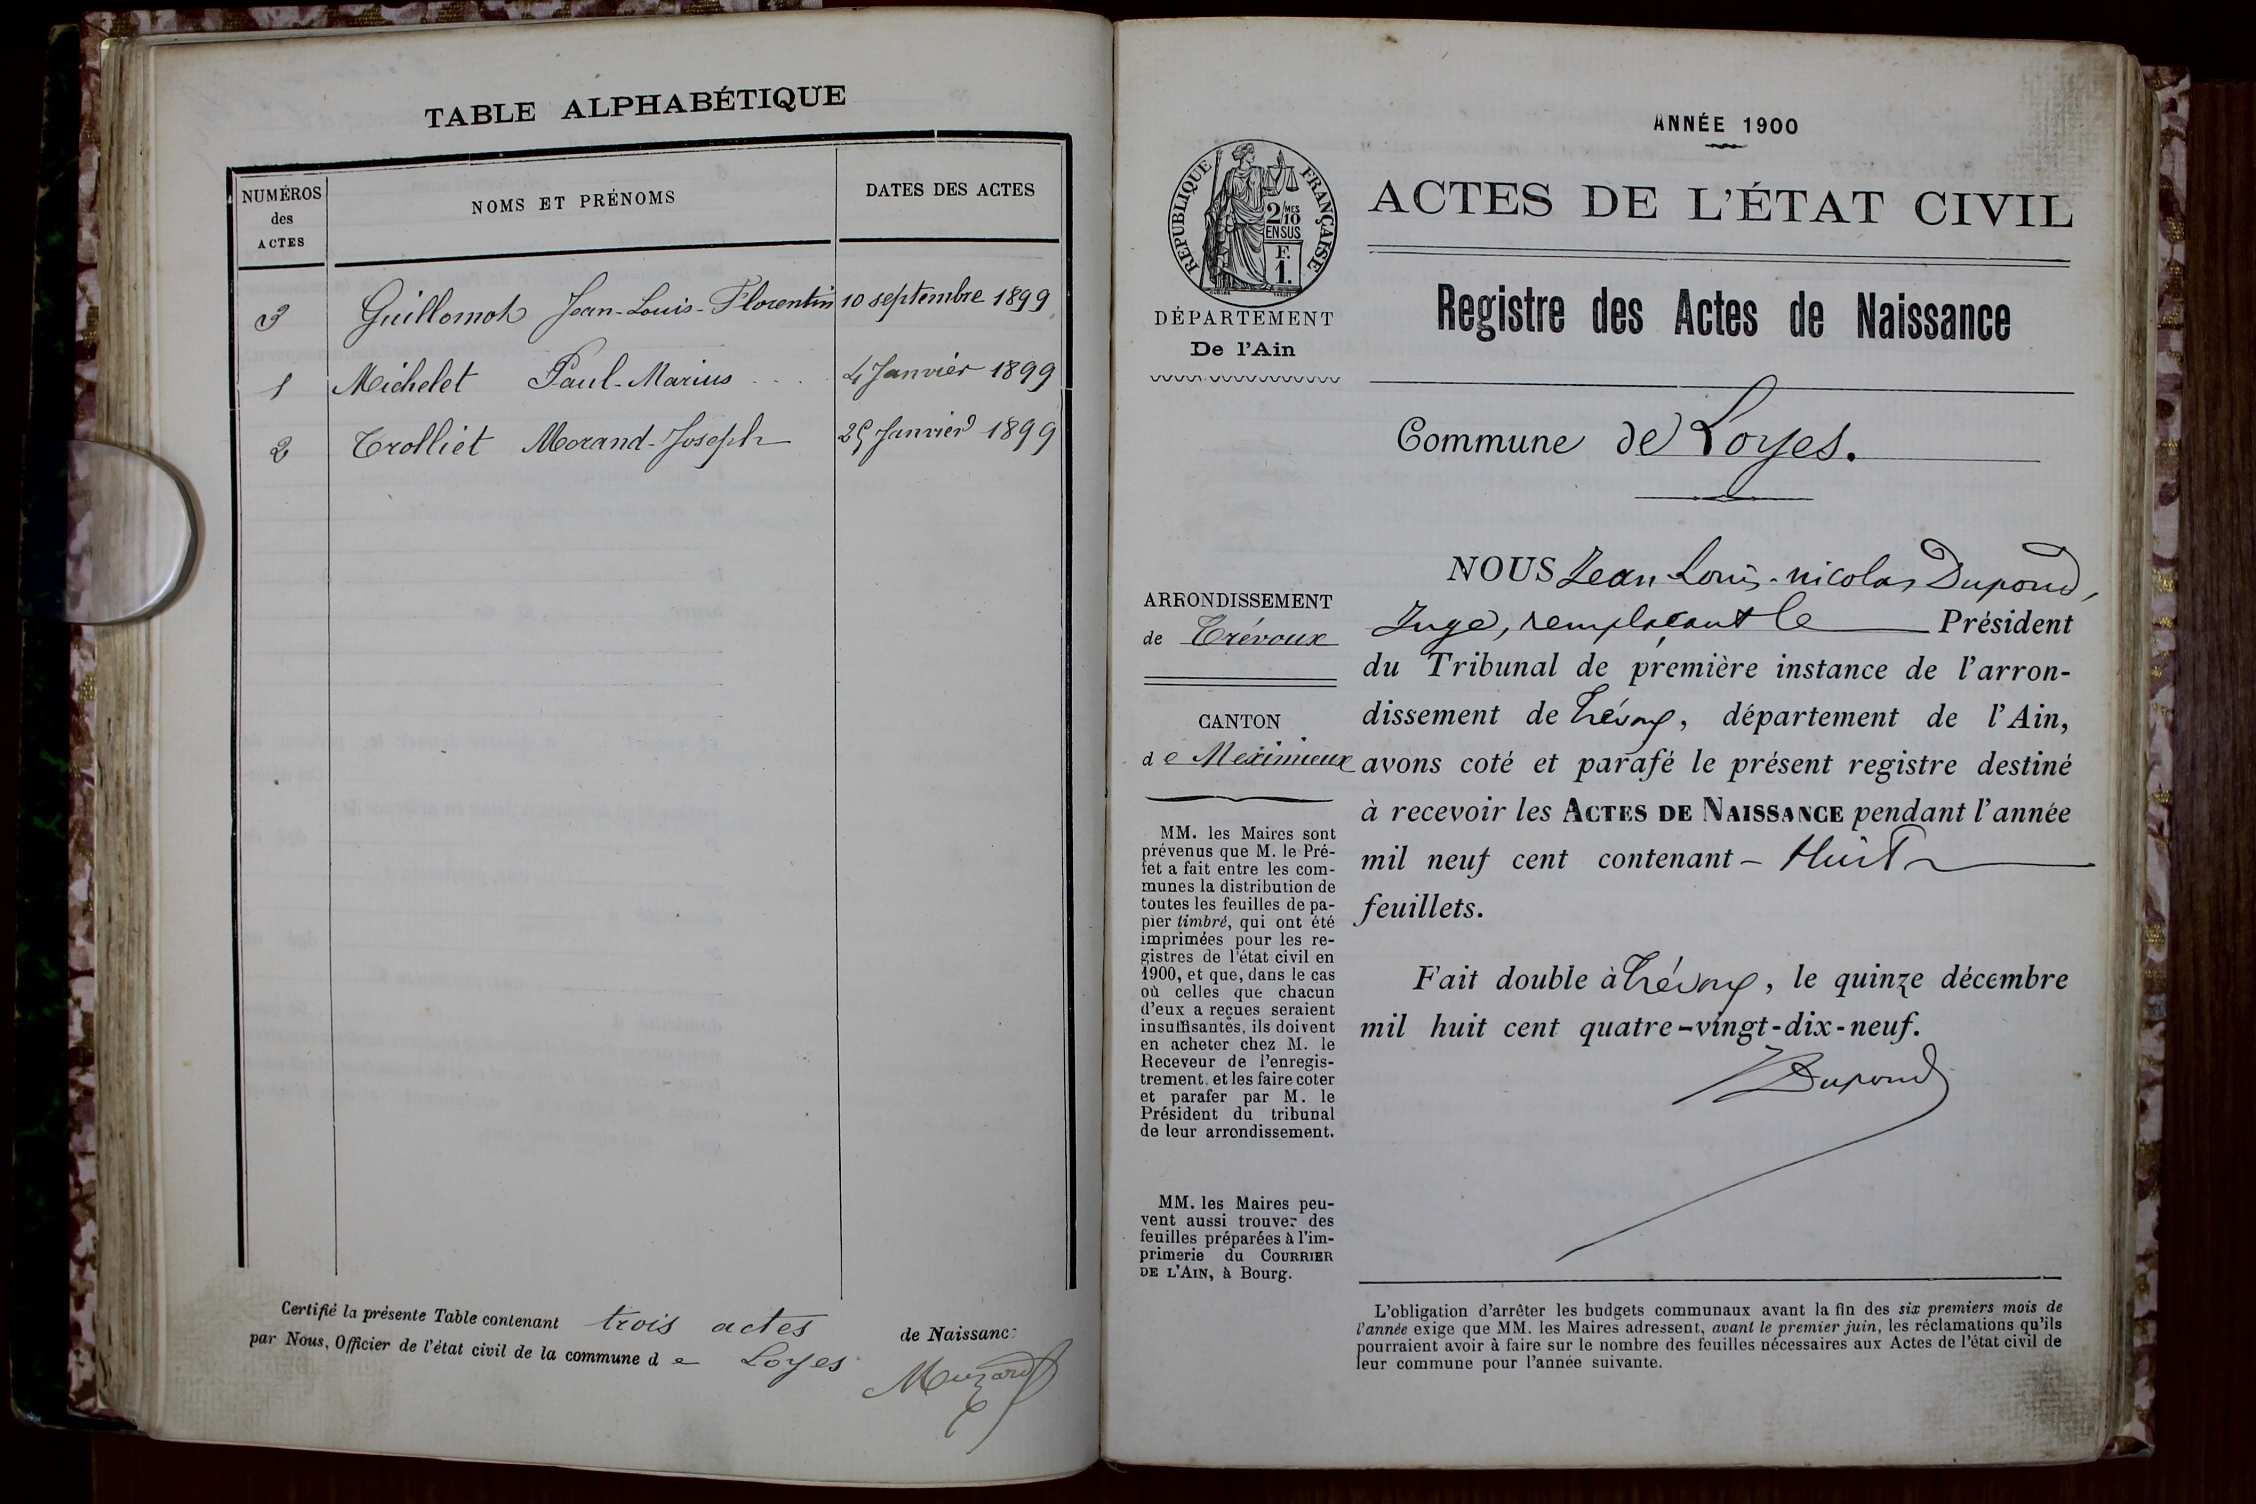 TABLE ALPHABÉTIQUE
NUMÉROS
des
ACTES
NOMS ET PRÉNOMS
DATES DES ACTES
3 Guillomot Jean-Louis-Florentin 10 septembre 1899
1 Michelet Paul-Marius 4 Janvier 1899
2 Trolliet Morand-Joseph 25 Janvier 1899
Certifié la présente Table contenant trois actes de Naissance
par Nous, Officier de l'état civil de la commune de Loyes
ANNÉE 1900
ACTES DE L'ÉTAT CIVIL
RÉPUBLIQUE FRANÇAISE
2/10 MES
EN SUS
F.
1.
DÉPARTEMENT
De l'Ain
Registre des Actes de Naissance
Commune de Loyes.
ARRONDISSEMENT
de Trévoux
CANTON
de Meximieux
MM. les Maires sont
prévenus que M. le Pré-
fet a fait entre les com-
munes la distribution de
toutes les feuilles de pa-
pier timbré, qui ont été
imprimées pour les re-
gistres de l'état civil en
1900, et que, dans le cas
où celles que chacun
d'eux a reçues seraient
insuffisantes, ils doivent
en acheter chez M. le
Receveur de l'enregis-
trement, et les faire coter
et parafer par M. le
Président du tribunal
de leur arrondissement.
MM. les Maires peu-
vent aussi trouver des
feuilles préparées à l'im-
primerie du COURRIER
DE L'AIN, à Bourg.
NOUS Jean Louis-nicolas Dupond,
Juge, remplaçant le Président
du Tribunal de première instance de l'arron-
dissement de Trévoux, département de l'Ain,
avons coté et parafé le présent registre destiné
à recevoir les ACTES DE NAISSANCE pendant l'année
mil neuf cent contenant - Huit
feuillets.
Fait double à Trévoux, le quinze décembre
mil huit cent quatre-vingt-dix-neuf.
Dupond
L'obligation d'arrêter les budgets communaux avant la fin des six premiers mois de
l'année exige que MM. les Maires adressent, avant le premier juin, les réclamations qu'ils
pourraient avoir à faire sur le nombre des feuilles nécessaires aux Actes de l'état civil de
leur commune pour l'année suivante.